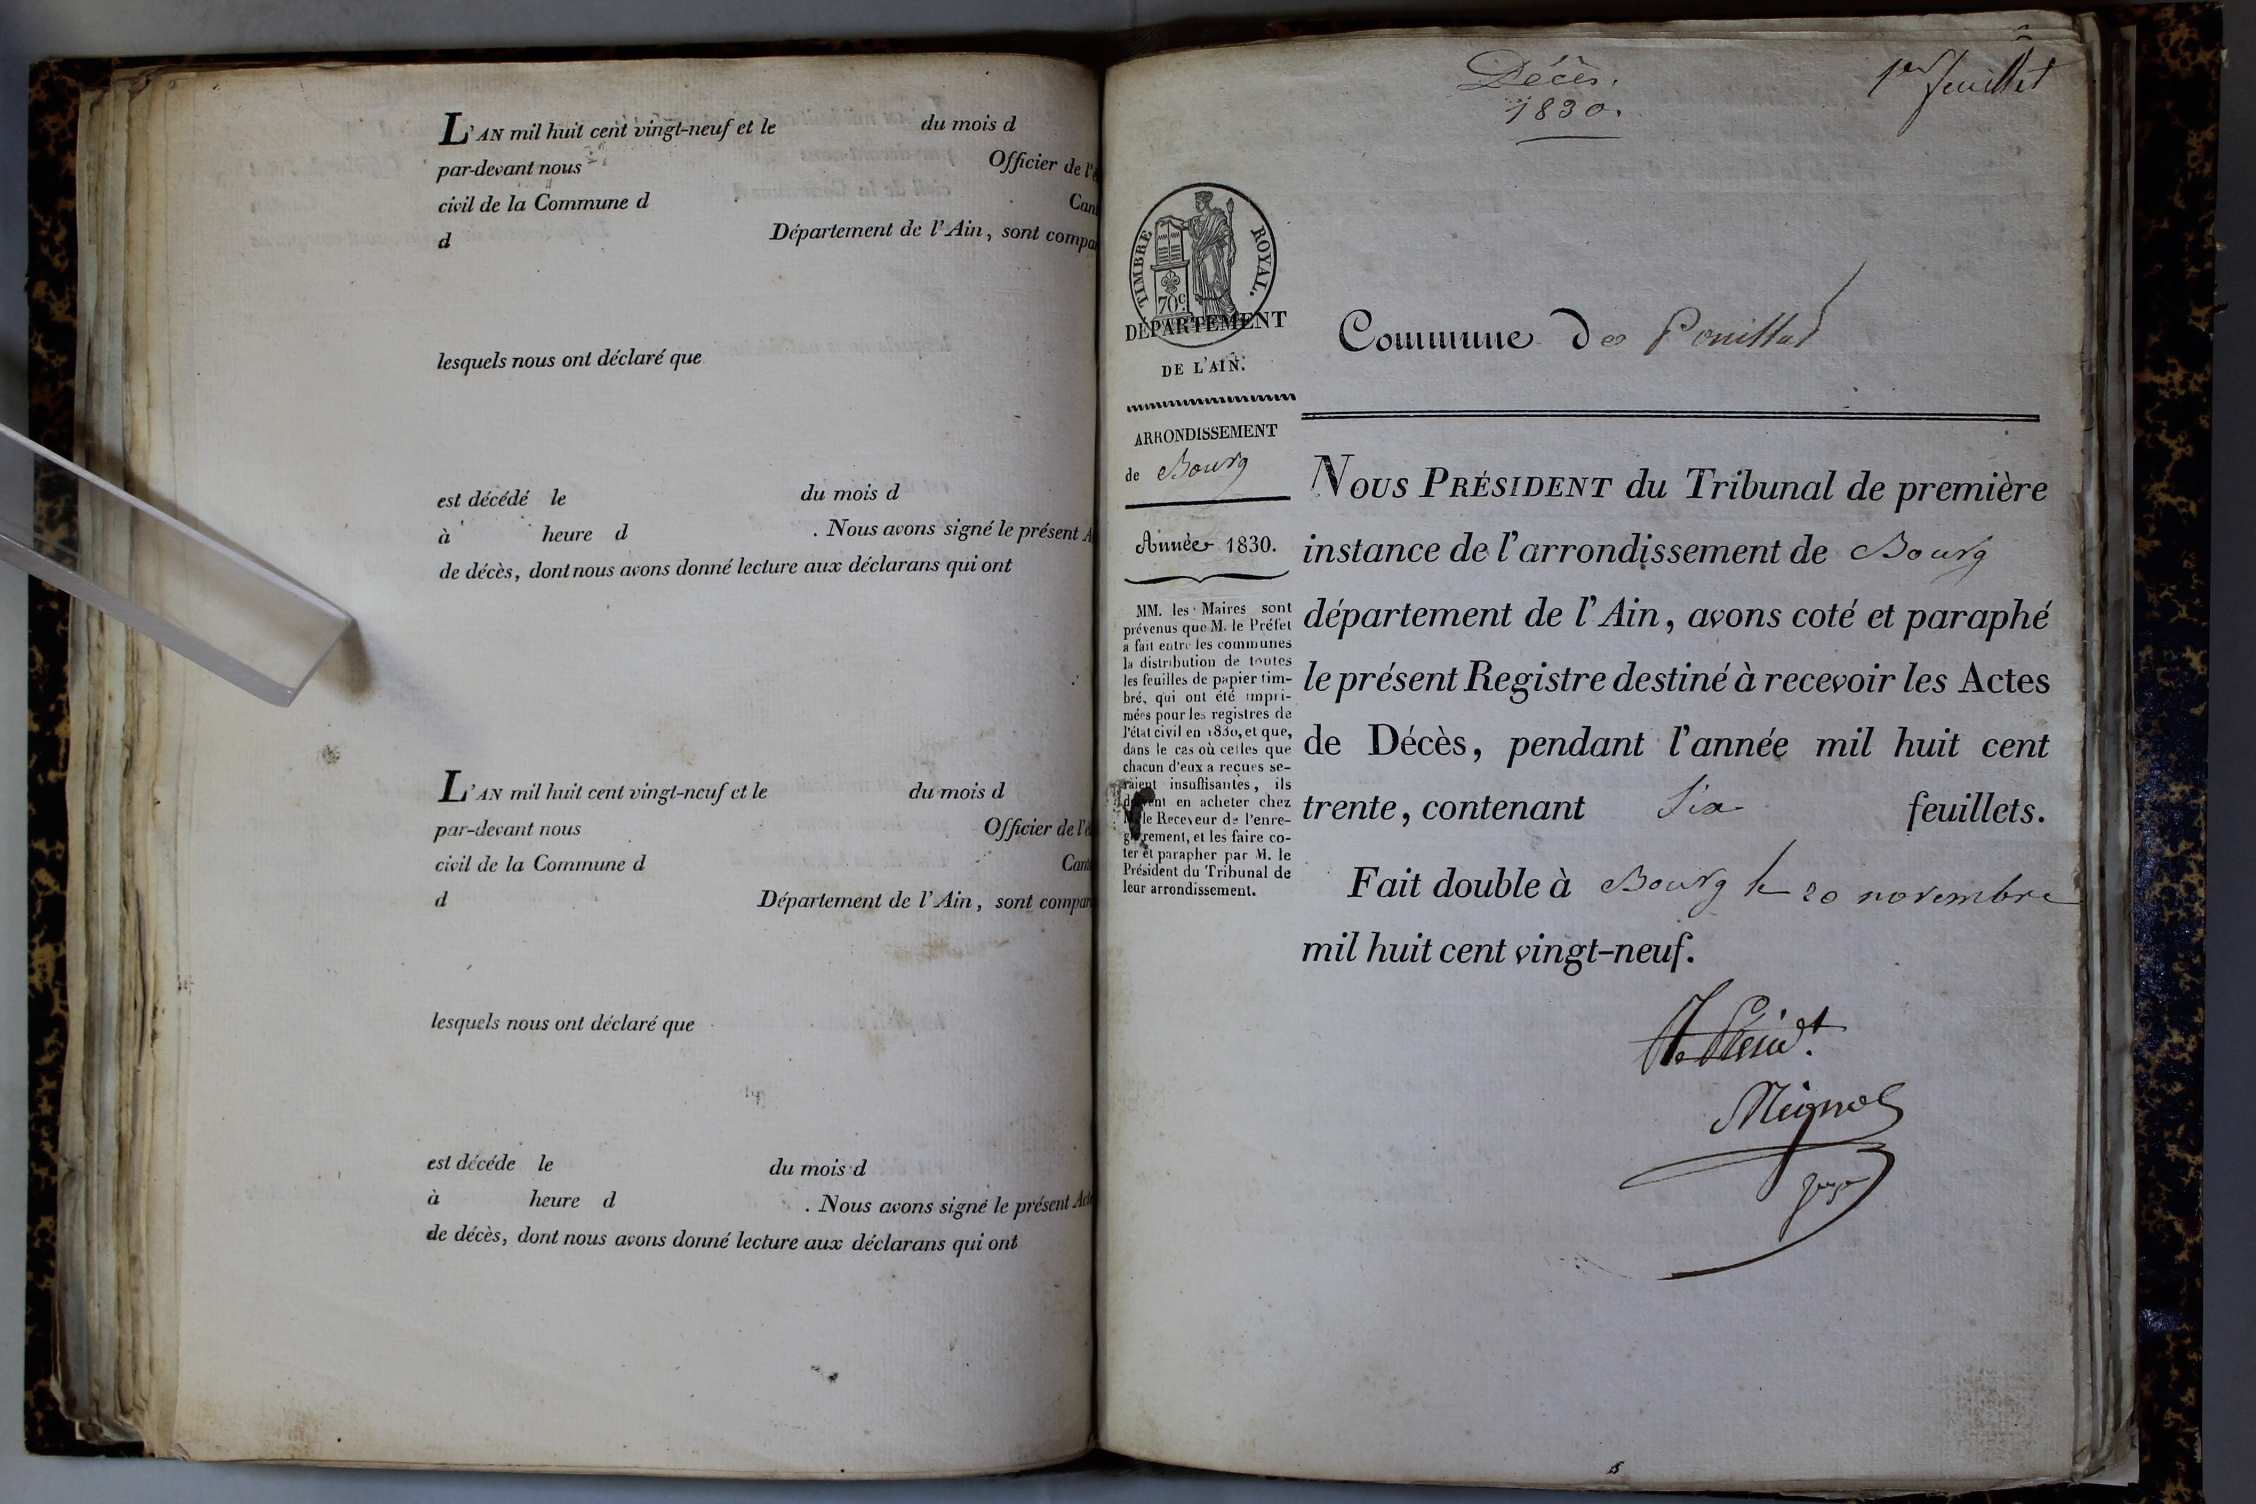 L'AN mil huit cent vingt-neuf et le du mois d
par-devant nous Officier de l'é
civil de la Commune d Can
d Département de l'Ain, sont compa
lesquels nous ont déclaré que
est décédé le du mois d
à heure d . Nous avons signé le présent A
de décès, dont nous avons donné lecture aux déclarans qui ont
L'AN mil huit cent vingt-neuf et le du mois d
par-devant nous Officier de l'é
civil de la Commune d Cant
d Département de l'Ain, sont compar
lesquels nous ont déclaré que
est décédé le du mois d
à heure d . Nous avons signé le présent Acte
de décès, dont nous avons donné lecture aux déclarans qui ont
Décès.
1830.
1er feuillet
TIMBRE ROYAL.
70c
DÉPARTEMENT
DE L'AIN.
ARRONDISSEMENT
de Bourg
Année 1830.
MM. les Maires sont
prévenus que M. le Préfet
a fait entre les communes
la distribution de toutes
les feuilles de papier tim-
bré, qui ont été impri-
mées pour les registres de
l'état civil en 1830, et que,
dans le cas où celles que
chacun d'eux a reçues se-
raient insuffisantes, ils
doivent en acheter chez
le Receveur de l'enre-
gistrement, et les faire co-
ter et parapher par M. le
Président du Tribunal de
leur arrondissement.
Commune de Pouillat
NOUS PRÉSIDENT du Tribunal de première
instance de l'arrondissement de Bourg
département de l'Ain, avons coté et paraphé
le présent Registre destiné à recevoir les Actes
de Décès, pendant l'année mil huit cent
trente, contenant Six feuillets.
Fait double à Bourg le 20 novembre
mil huit cent vingt-neuf.
juge